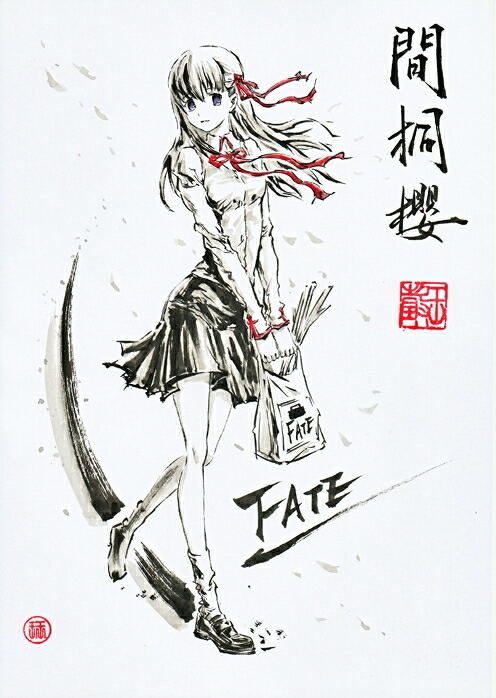 間
桐
櫻
FATE
FATE